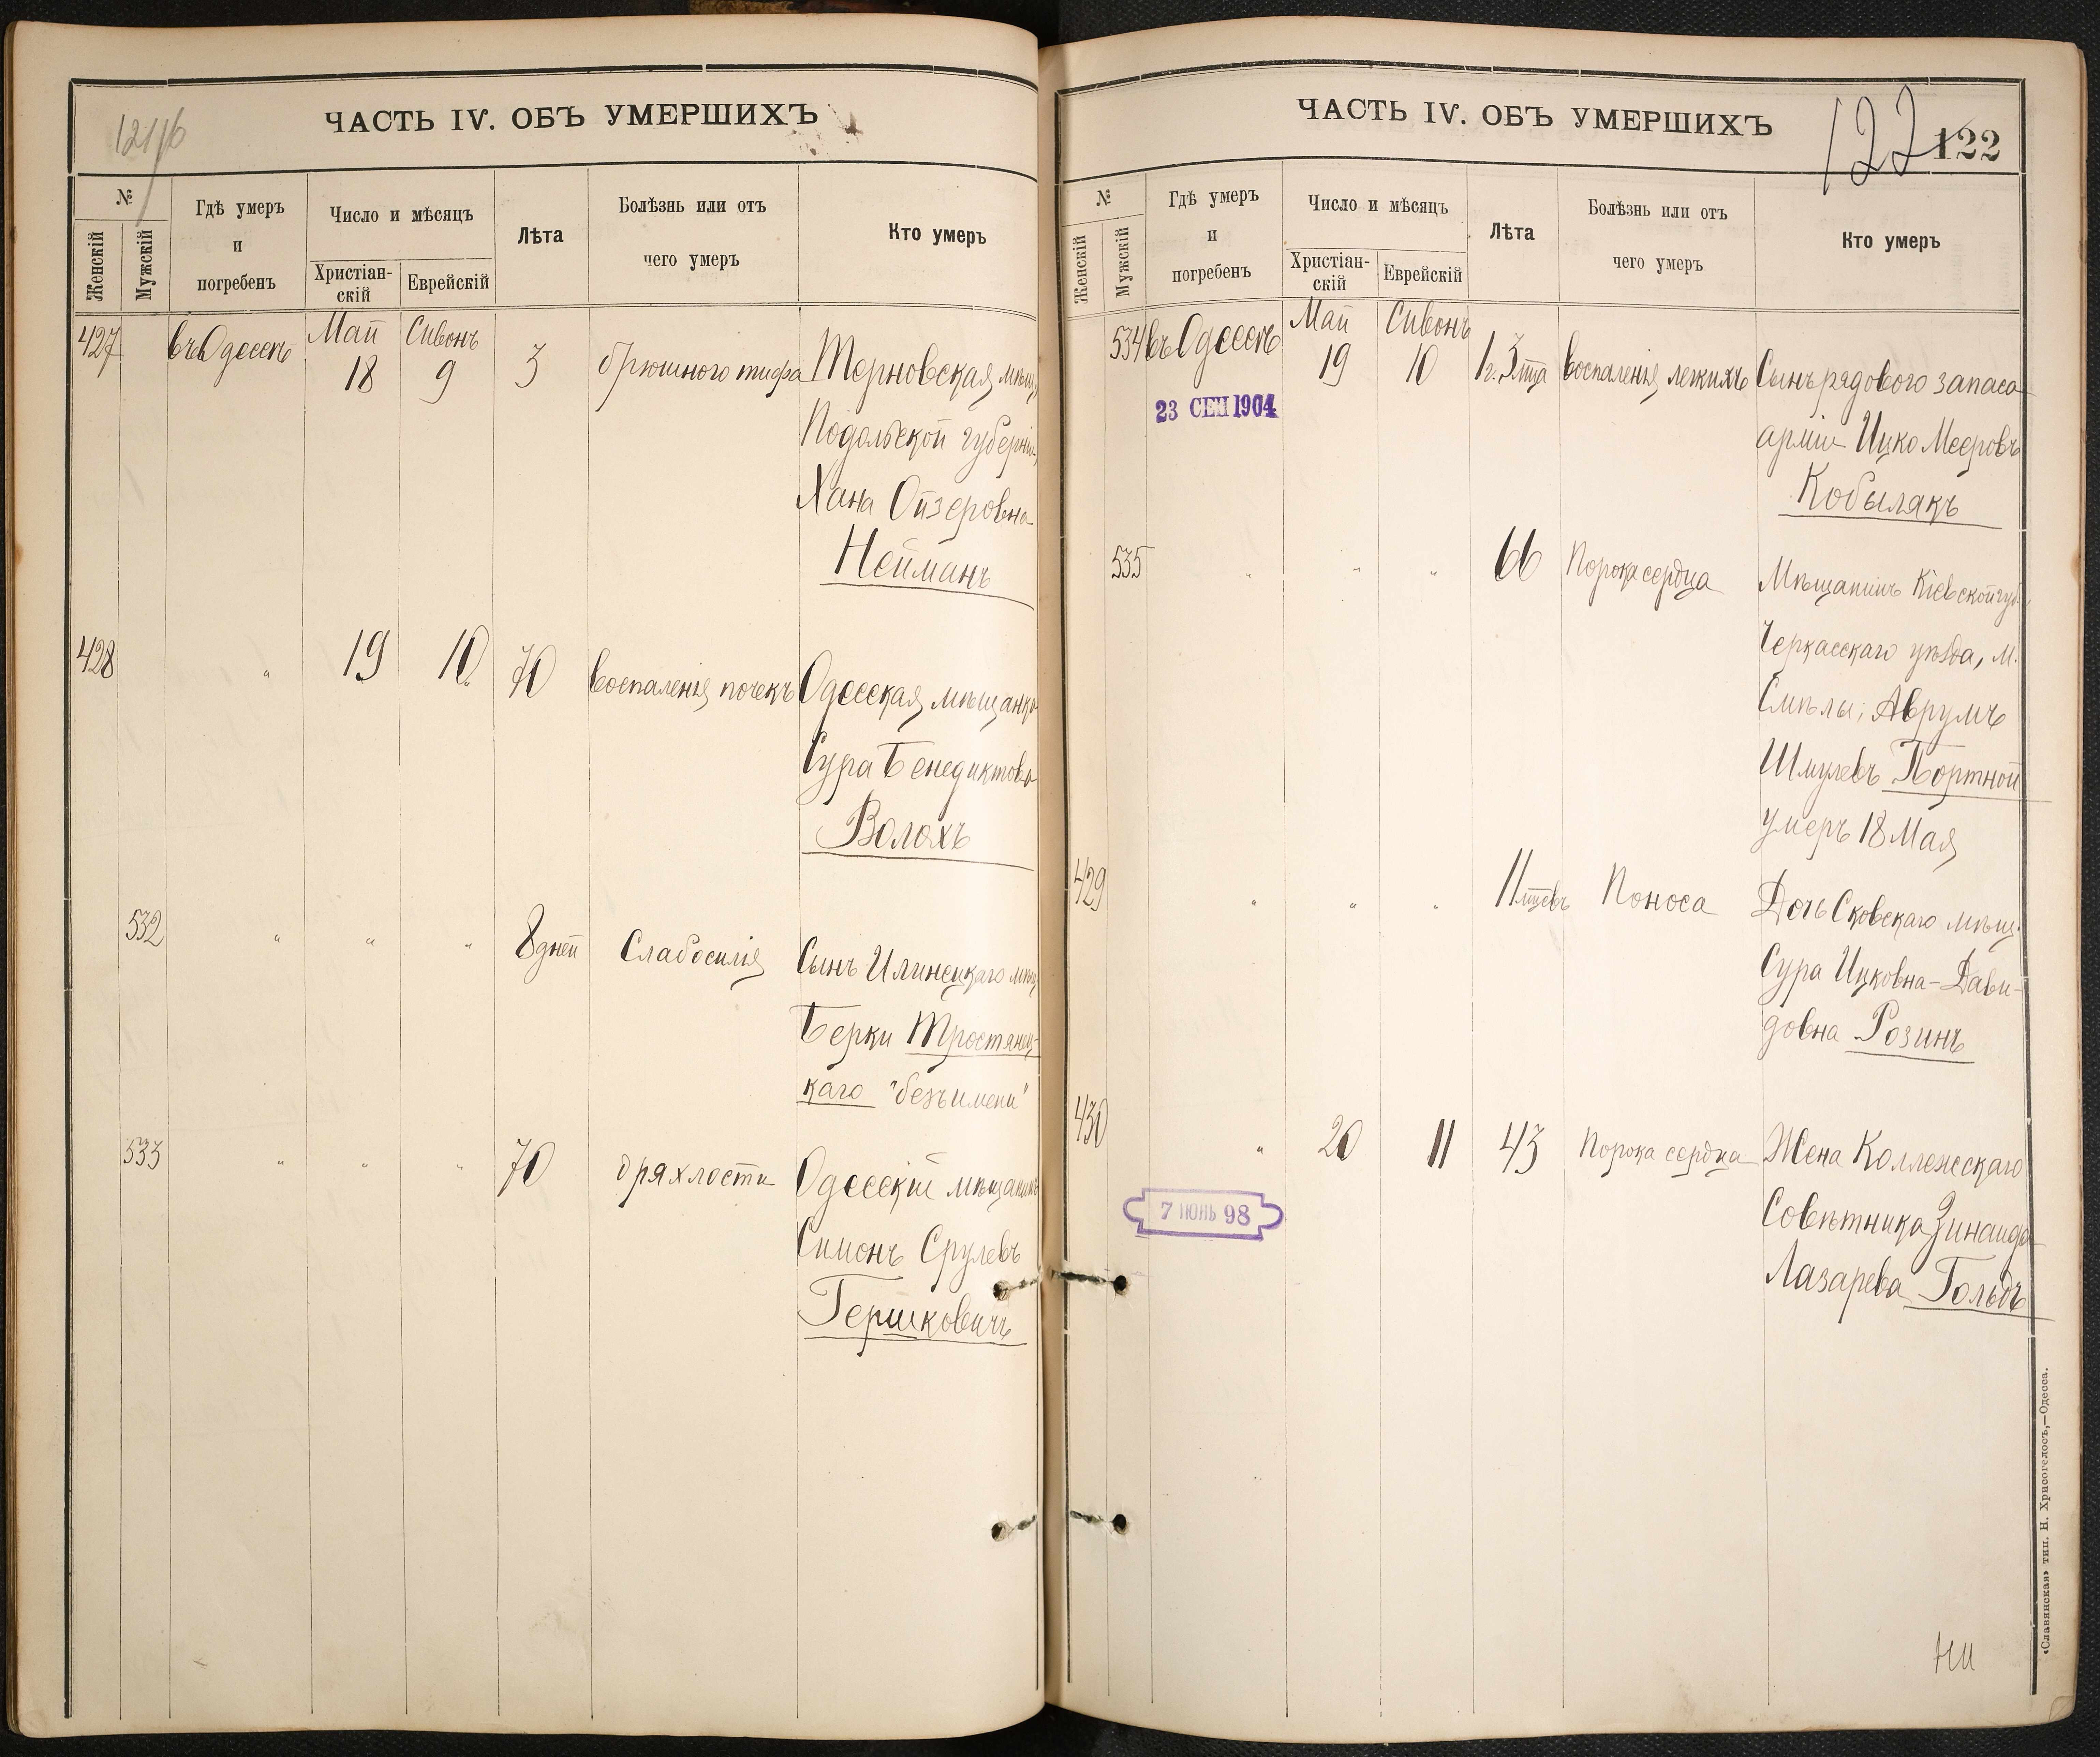 121 об
ЧАСТЬ IV. ОБЪ УМЕРШИХЪ
№
Женскій
Мужскій
Гдѣ умеръ
и
погребенъ
Число и мѣсяцъ
Христіан-
скій
Еврейскій
Лѣта
Болѣзнь или отъ
чего умеръ
Кто умеръ
427 въ Одессѣ Май 18 Сивонъ 9 3 брюшного тифа Терновская мѣщ.
Подольской губерніи
Хана Ойзеровна
Нейманъ
428 " 19 10 70 воспаленія почекъ Одесская мѣщанка
Сура Бенедиктова
Волохъ
532 " " " 8 дней Слабосилія Сынъ Илинецкаго мѣщ.
Берки Тростянец-
каго "безъ имени"
533 " " " 70 дряхлости Одесскій мѣщанинъ
Симонъ Срулевъ
Гершковичъ
ЧАСТЬ IV. ОБЪ УМЕРШИХЪ
122
122
№
Женскій
Мужскій
Гдѣ умеръ
и
погребенъ
Число и мѣсяцъ
Христіан-
скій
Еврейскій
Лѣта
Болѣзнь или отъ
чего умеръ
Кто умеръ
534 въ Одессѣ Май 19 Сивонъ 10 1 г. 3 мца воспаленія легкихъ Сынъ рядового запаса
23 СЕН 1904
арміи Ицко Мееровъ
Кобылякъ
535 " " " 66 Порока сердца Мѣщанинъ Кіевской губ.
Черкасскаго уѣзда, м.
Смѣлы, Аврумъ
Шмулевъ Портной
умеръ 18 Мая
429 " " " 11 мцевъ Поноса Дочь Сквскаго мѣщ.
Сура Ицковна-Дави-
довна Розинъ
430 " 20 11 43 Порока сердца Жена Коллежскаго
7 ІЮНЬ 98
Совѣтника Зинаида
Лазарева Гольдъ
«Славянская» тип. Н. Хрисогелосъ,—Одесса.